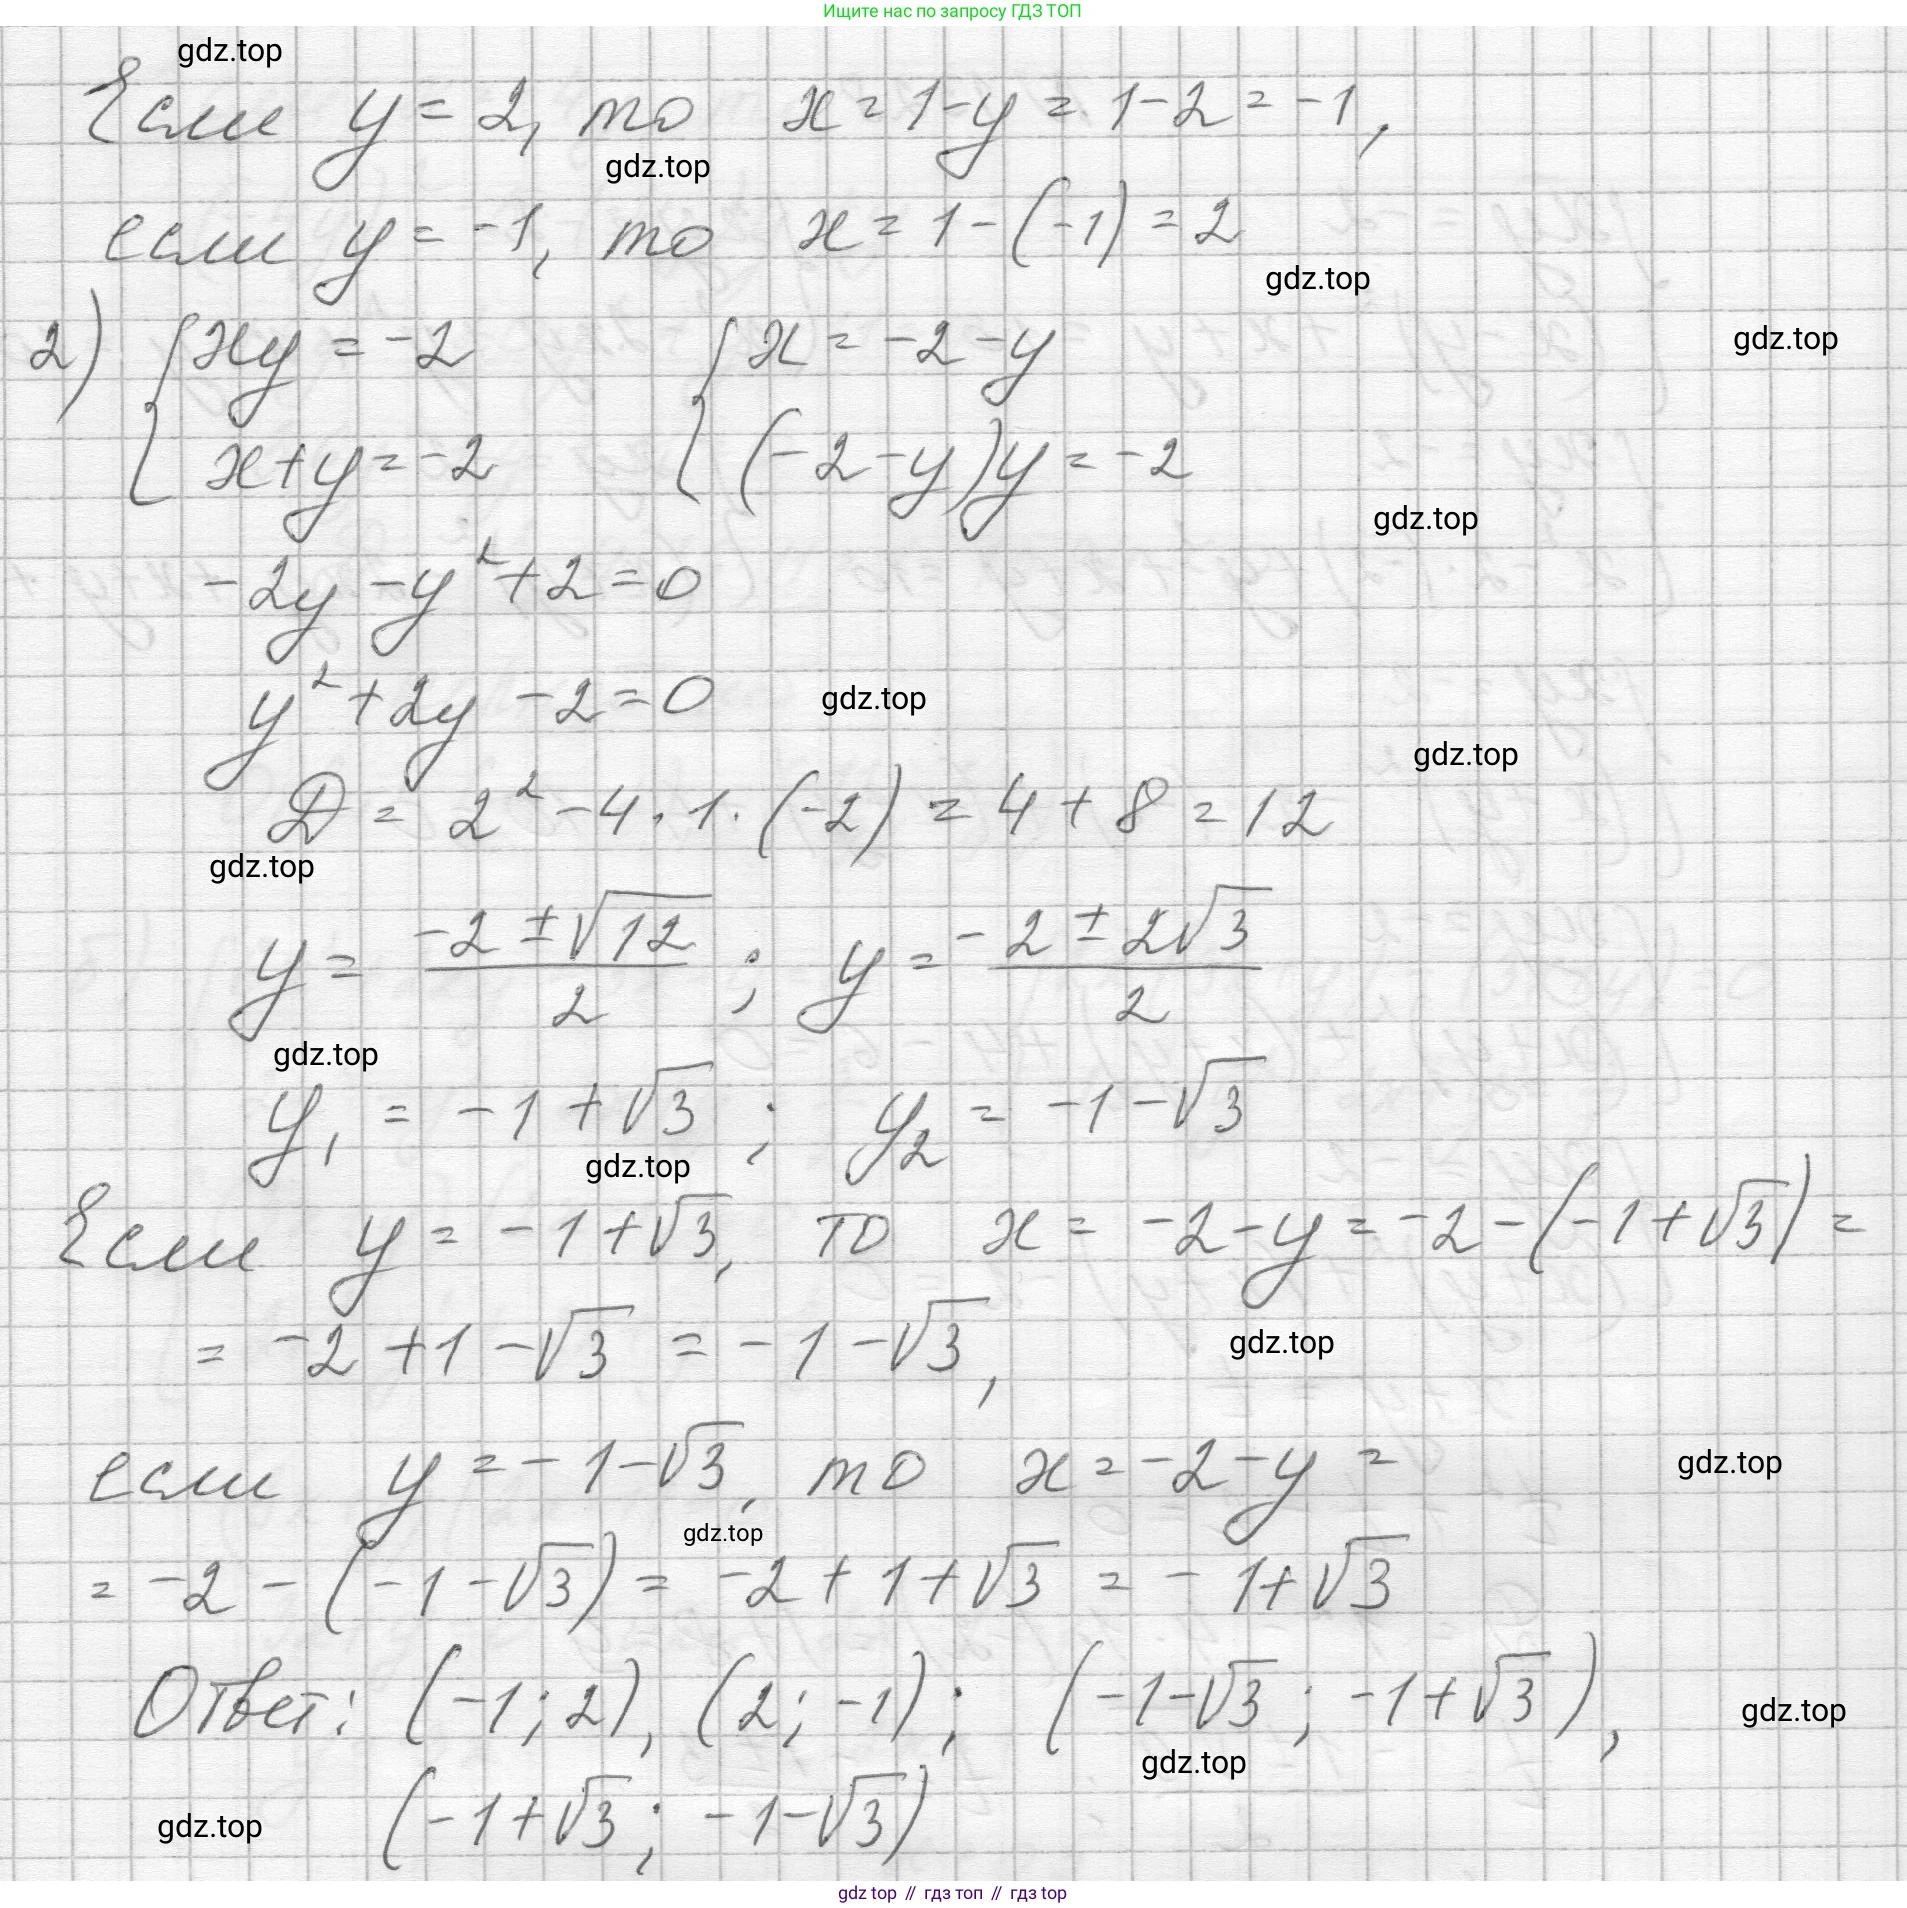 Ищите нас по запросу ГДЗ ТОП
gdz.top
Если y = 2, то x = 1 - y = 1 - 2 = -1,
gdz.top
если y = -1, то x = 1 - (-1) = 2
gdz.top
2) { xy = -2 { x = -2 - y
gdz.top
x + y = -2 (-2 - y)y = -2
gdz.top
-2y - y² + 2 = 0
y² + 2y - 2 = 0
gdz.top
gdz.top
D = 2² - 4 · 1 · (-2) = 4 + 8 = 12
gdz.top
y = (-2 ± √12)/2 ; y = (-2 ± 2√3)/2
gdz.top
y₁ = -1 + √3 ; y₂ = -1 - √3
gdz.top
Если y = -1 + √3, то x = -2 - y = -2 - (-1 + √3) =
= -2 + 1 - √3 = -1 - √3,
gdz.top
если y = -1 - √3, то x = -2 - y =
gdz.top
gdz.top
= -2 - (-1 - √3) = -2 + 1 + √3 = -1 + √3
Ответ: (-1; 2), (2; -1); (-1 - √3; -1 + √3),
gdz.top
gdz.top
(-1 + √3; -1 - √3)
gdz.top
gdz top // гдз топ // гдз top